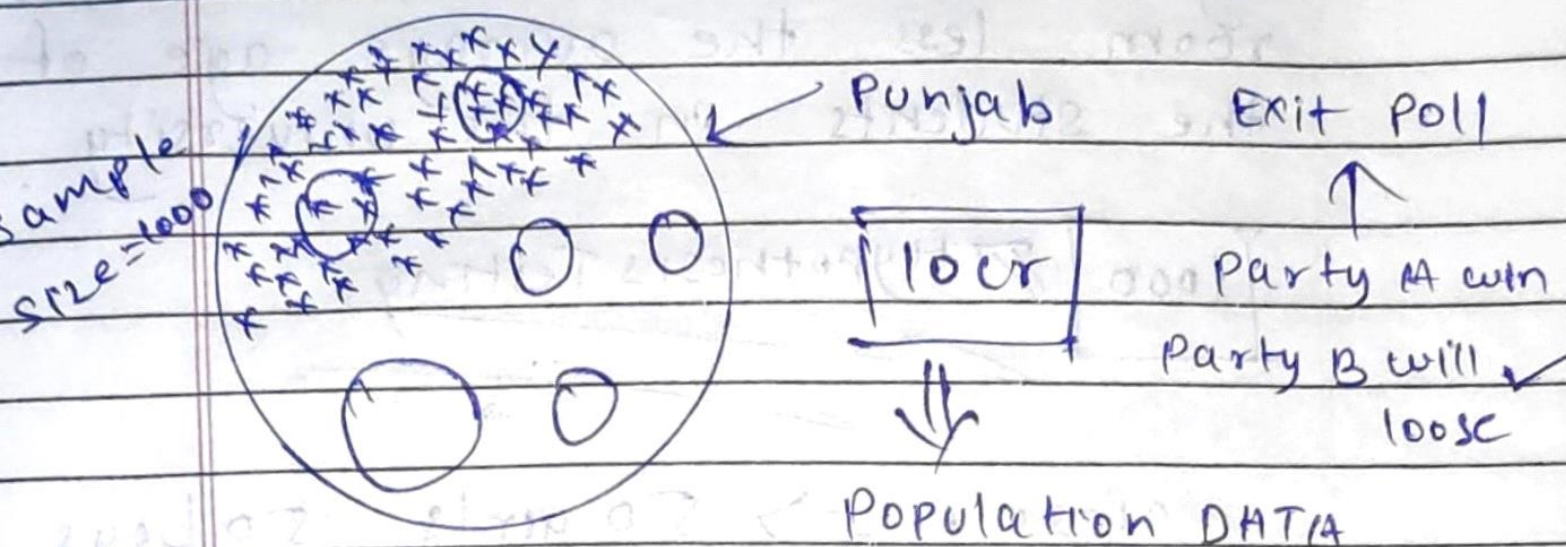 Sample
size=1000
Punjab
Exit Poll
10cr
Party A win
Party B will
loose
Population DATA